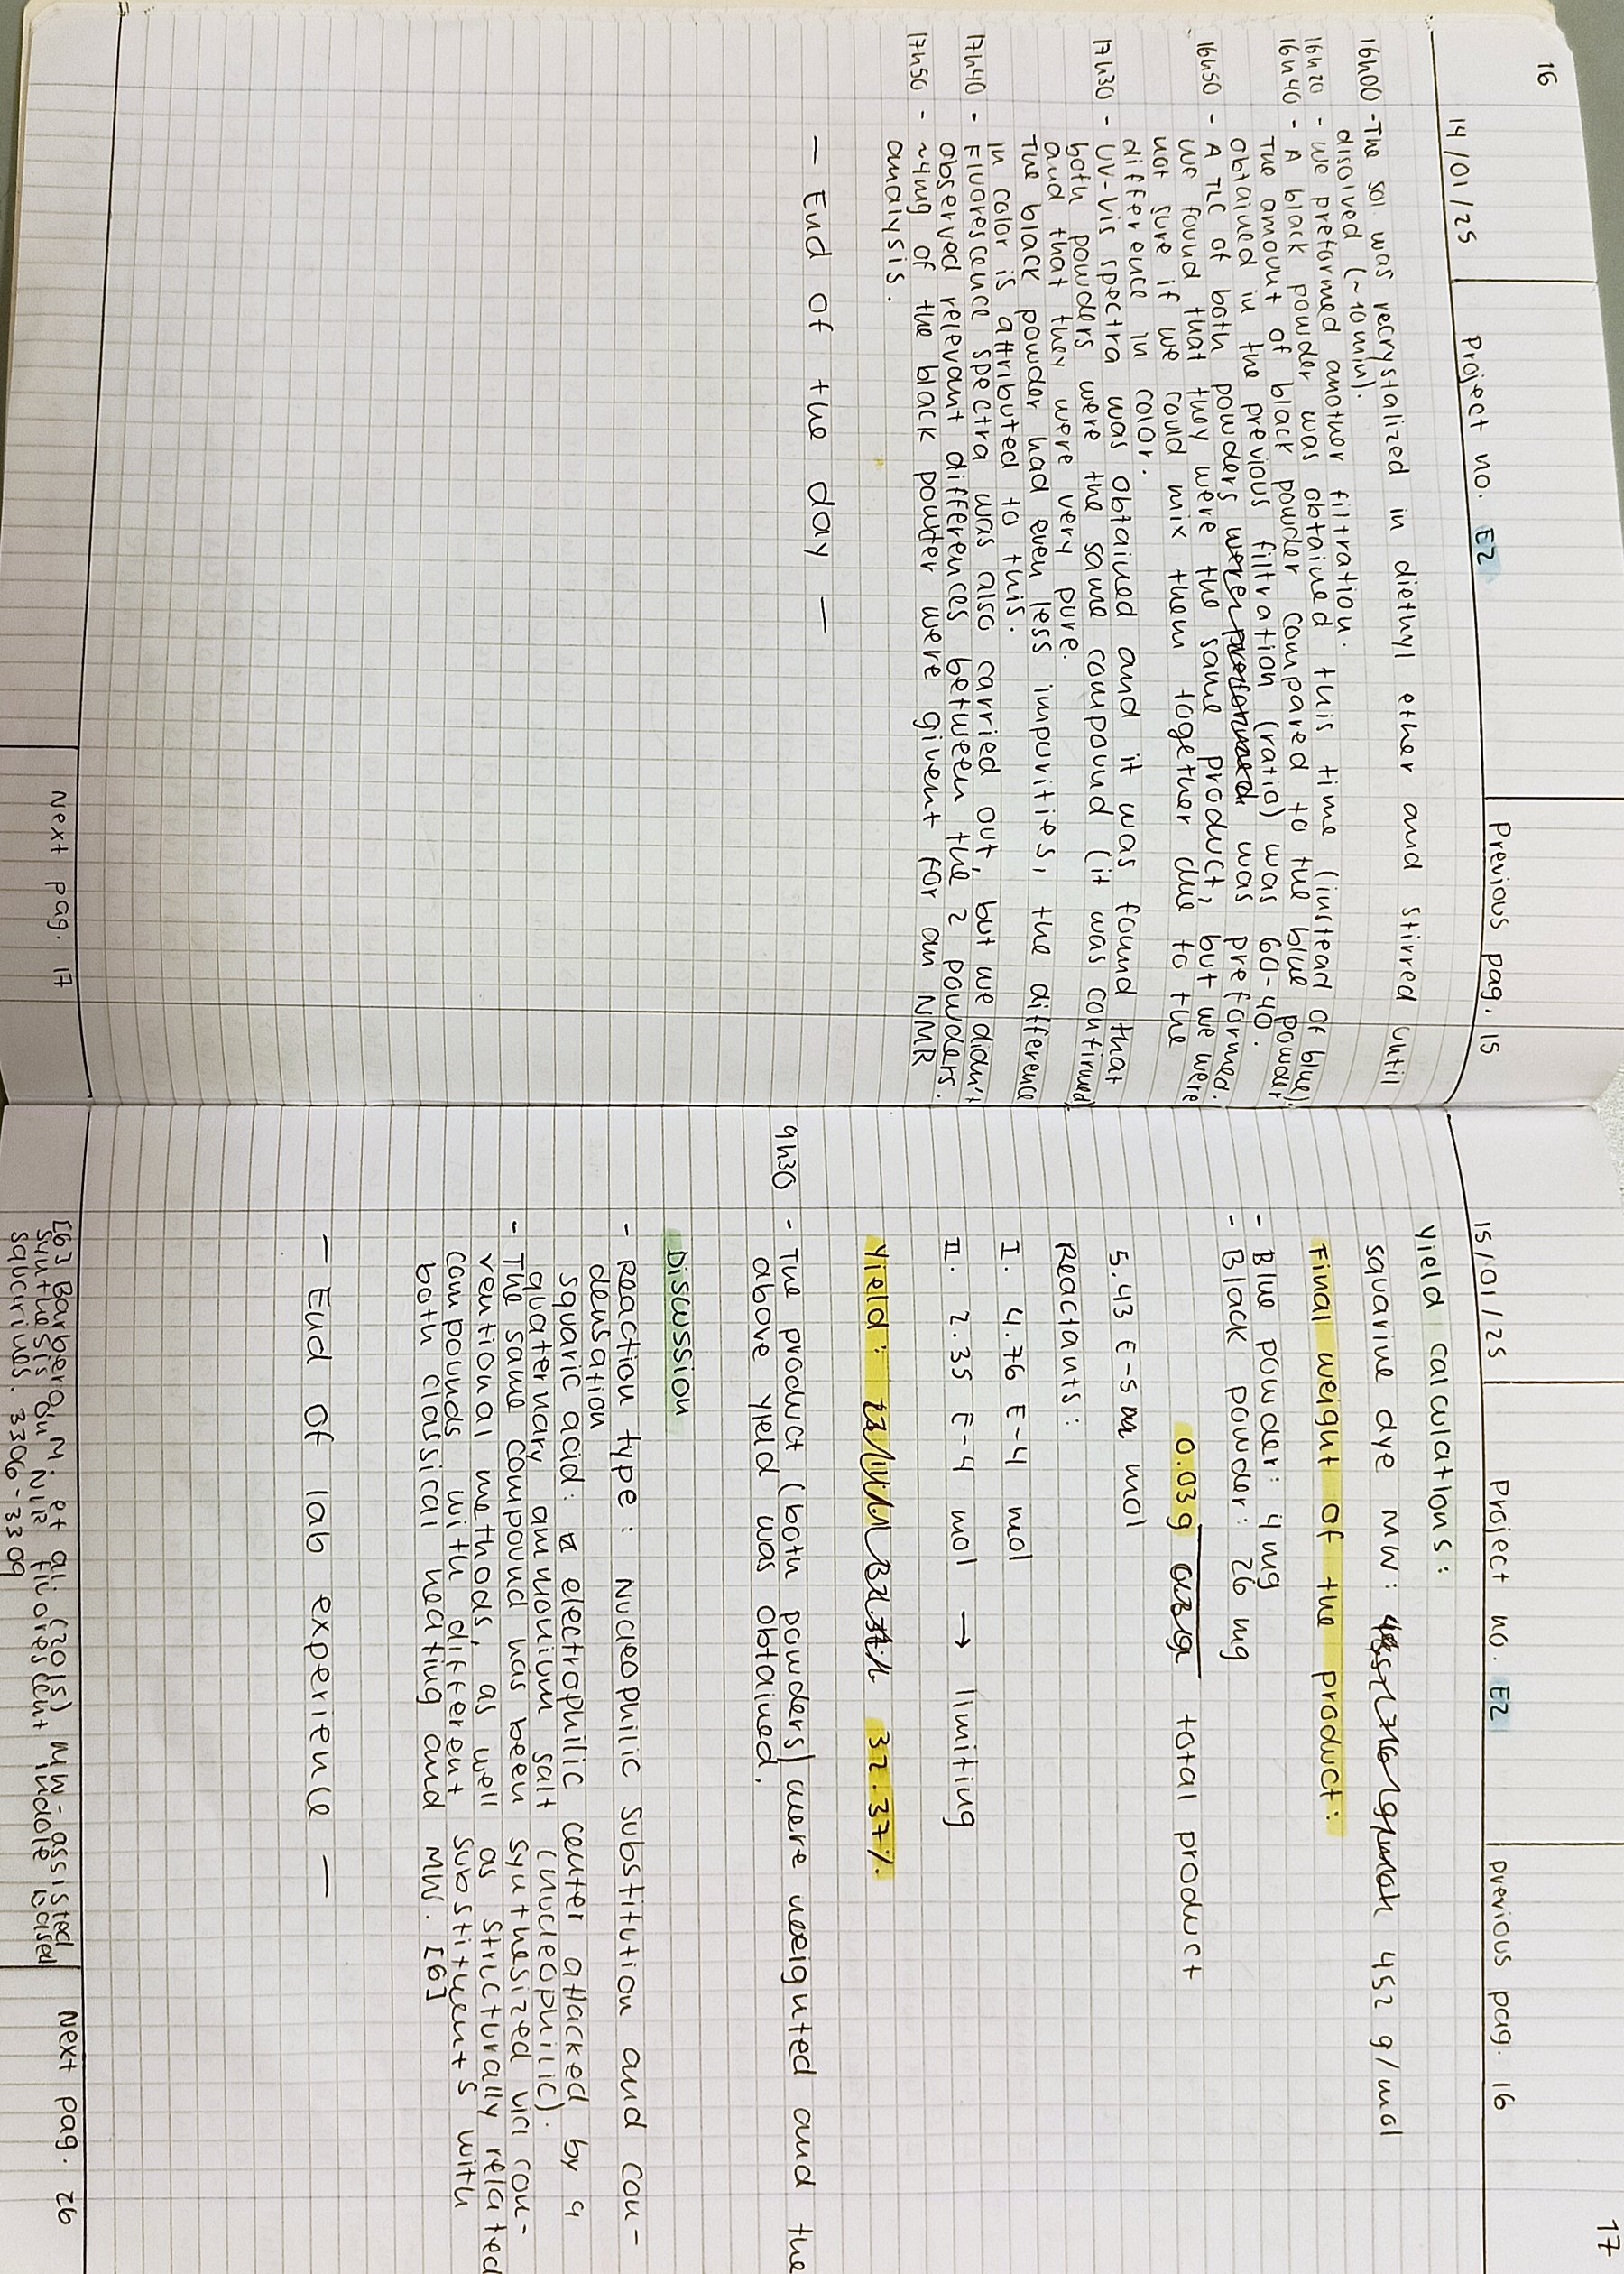 16
14/01/25
Project no. E2
Previous pag. 15
16h00 - The sol. was recrystalized in diethyl ether and stirred until
disolved (~10min).
16h20 - we preformed another filtration.
16h40 - A black powder was obtained this time (instead of blue).
The amount of black powder compared to the blue powder
obtained in the previous filtration (ratio) was 60-40.
16h50 - A TLC of both powders was preformed.
we found that they were the same product, but we were
not sure if we could mix them together due to the
difference in color.
17h30 - UV-Vis spectra was obtained and it was found that
both powders were the same compound (it was continued)
and that they were very pure.
The black powder had even less impurities, the difference
in color is attributed to this.
17h40 - Fluorescence spectra was also carried out, but we didn't
observed relevant differences between the 2 powders.
17h50 - ~4mg of the black powder were givent for an NMR
analysis.
— End of the day —
Next pag. 17
17
15/01/25
Project no. E2
previous pag. 16
Yield calculations:
squarine dye MW: 452 g/mol
Final weight of the product:
- Blue powder: 4 mg
- Black powder: 26 mg
0.03g total product
5.43 E-5 mol
Reactants:
I. 4.76 E-4 mol
II. 2.35 E-4 mol → limiting
Yield: 32.37%.
9h30 - The product (both powders) were weighted and the
above yield was obtained.
Discussion
- Reaction type: Nucleophilic substitution and con-
densation
squaric acid: electrophilic center attacked by a
quaternary ammonium salt (nucleophilic).
- The same compound has been synthesized via con-
ventional methods, as well as structurally related
compounds with different substituents with
both classical heating and MW. [6]
— End of lab experience —
[6] Barbero, M. et al; (2015) MW-assisted
synthesis on NIR fluorescent indole based
squarines. 3306-3309
Next pag. 26